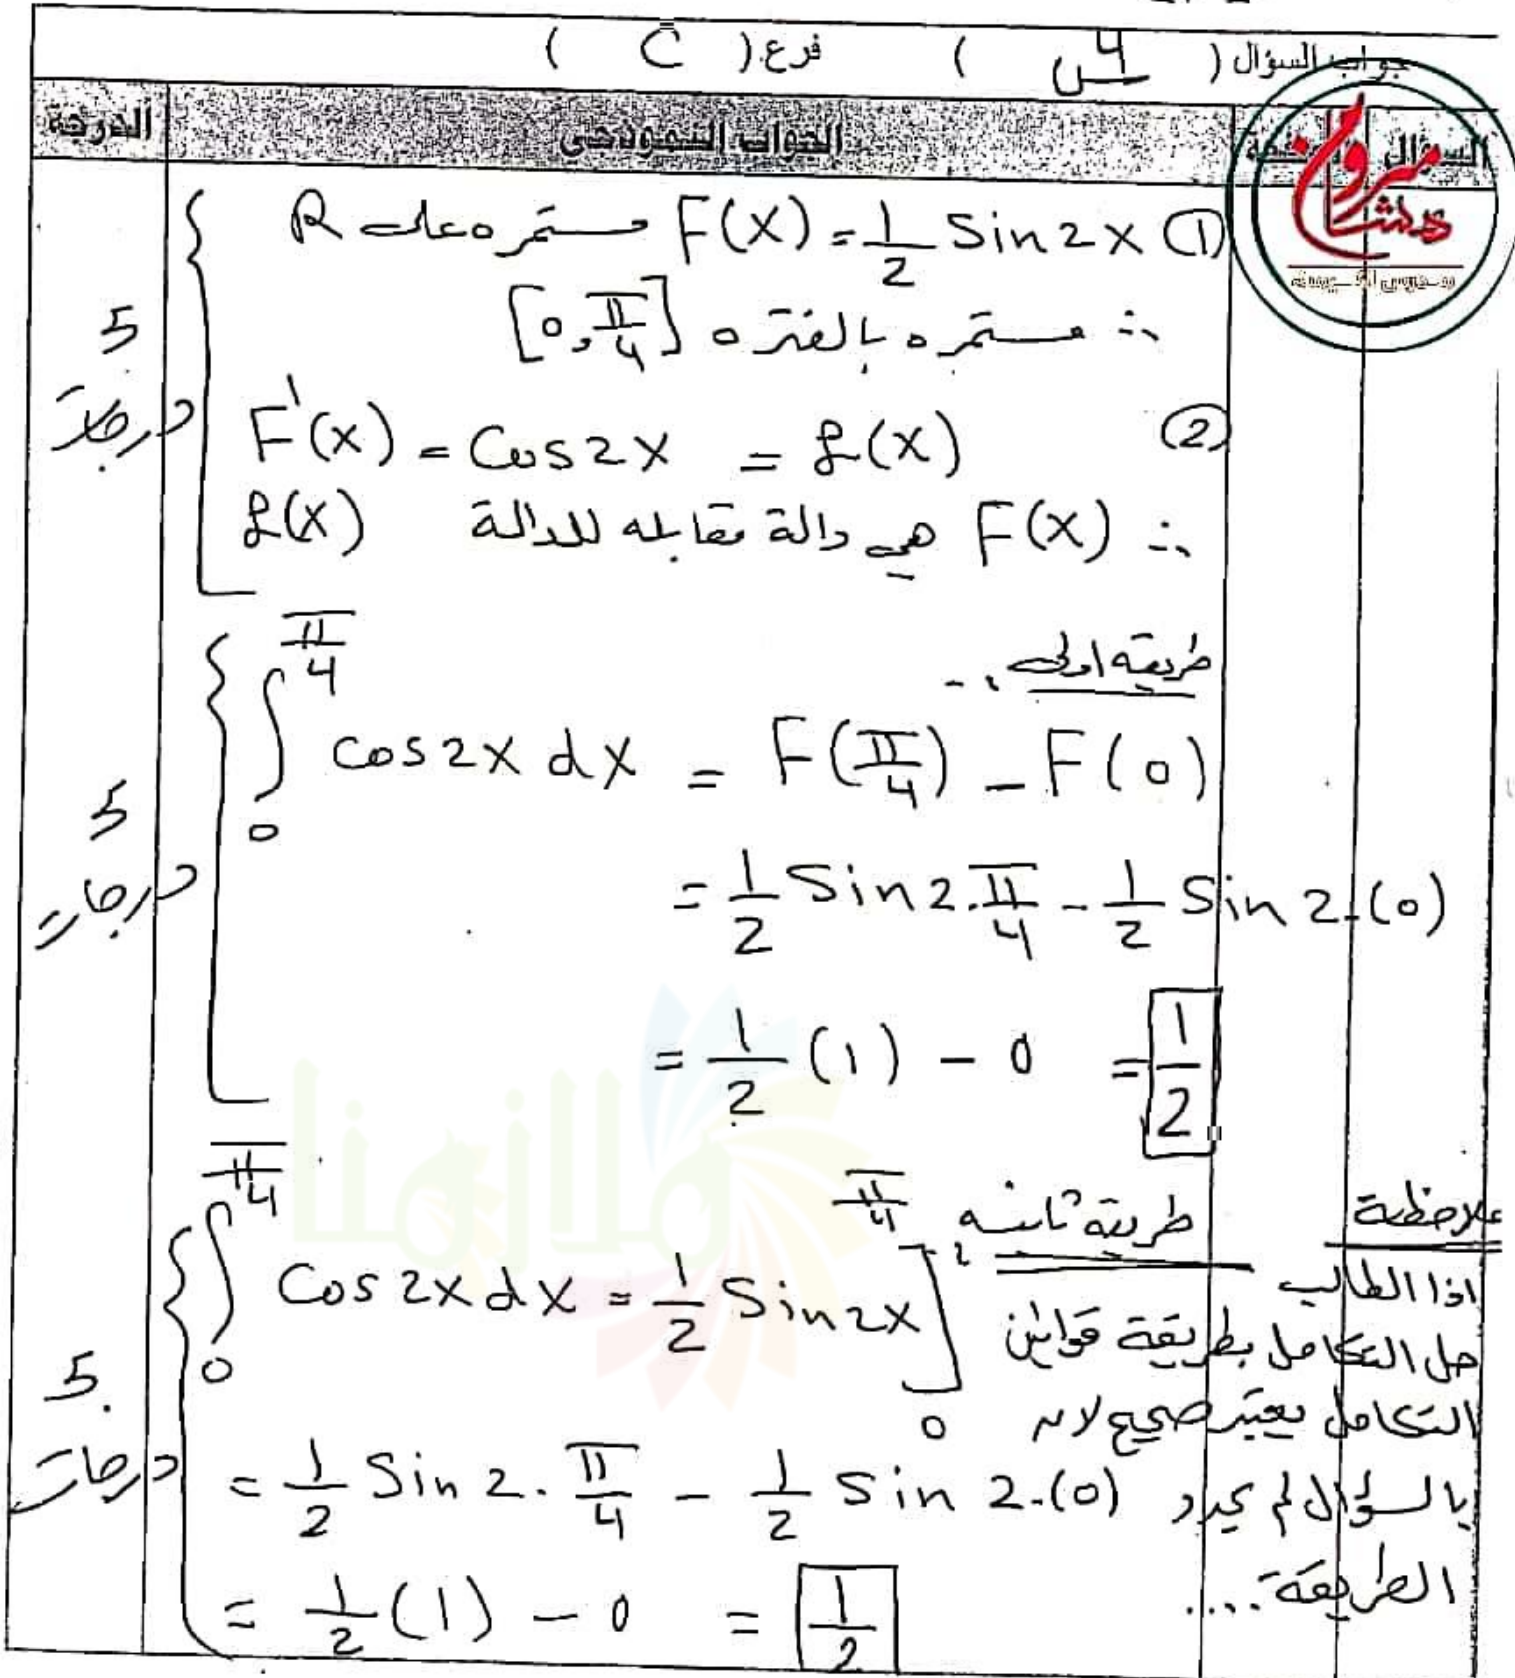 جواب السؤال ( س4 ) فرع ( C )
السؤال الجواب النموذجي الدرجة
① F(x) = 1/2 Sin2x مستمره على R
∴ مستمره بالفتره [0, π/4]
② F'(x) = Cos2x = f(x)
5 درجات
∴ F(x) هي دالة مقابله للدالة f(x)
طريقه اولى
∫₀^(π/4) cos2x dx = F(π/4) - F(0)
5 درجات
= 1/2 Sin2.π/4 - 1/2 Sin2.(0)
= 1/2 (1) - 0 = 1/2
ملازمنا
طريقه ثانيه
∫₀^(π/4) Cos2x dx = 1/2 Sin2x]₀^(π/4)
5 درجات
= 1/2 Sin2.π/4 - 1/2 Sin2.(0)
= 1/2 (1) - 0 = 1/2
ملاحظة
اذا الطالب
حل التكامل بطريقة قوانين
التكامل يعتبر صحيح لانه
بالسؤال لم يحدد
الطريقة....